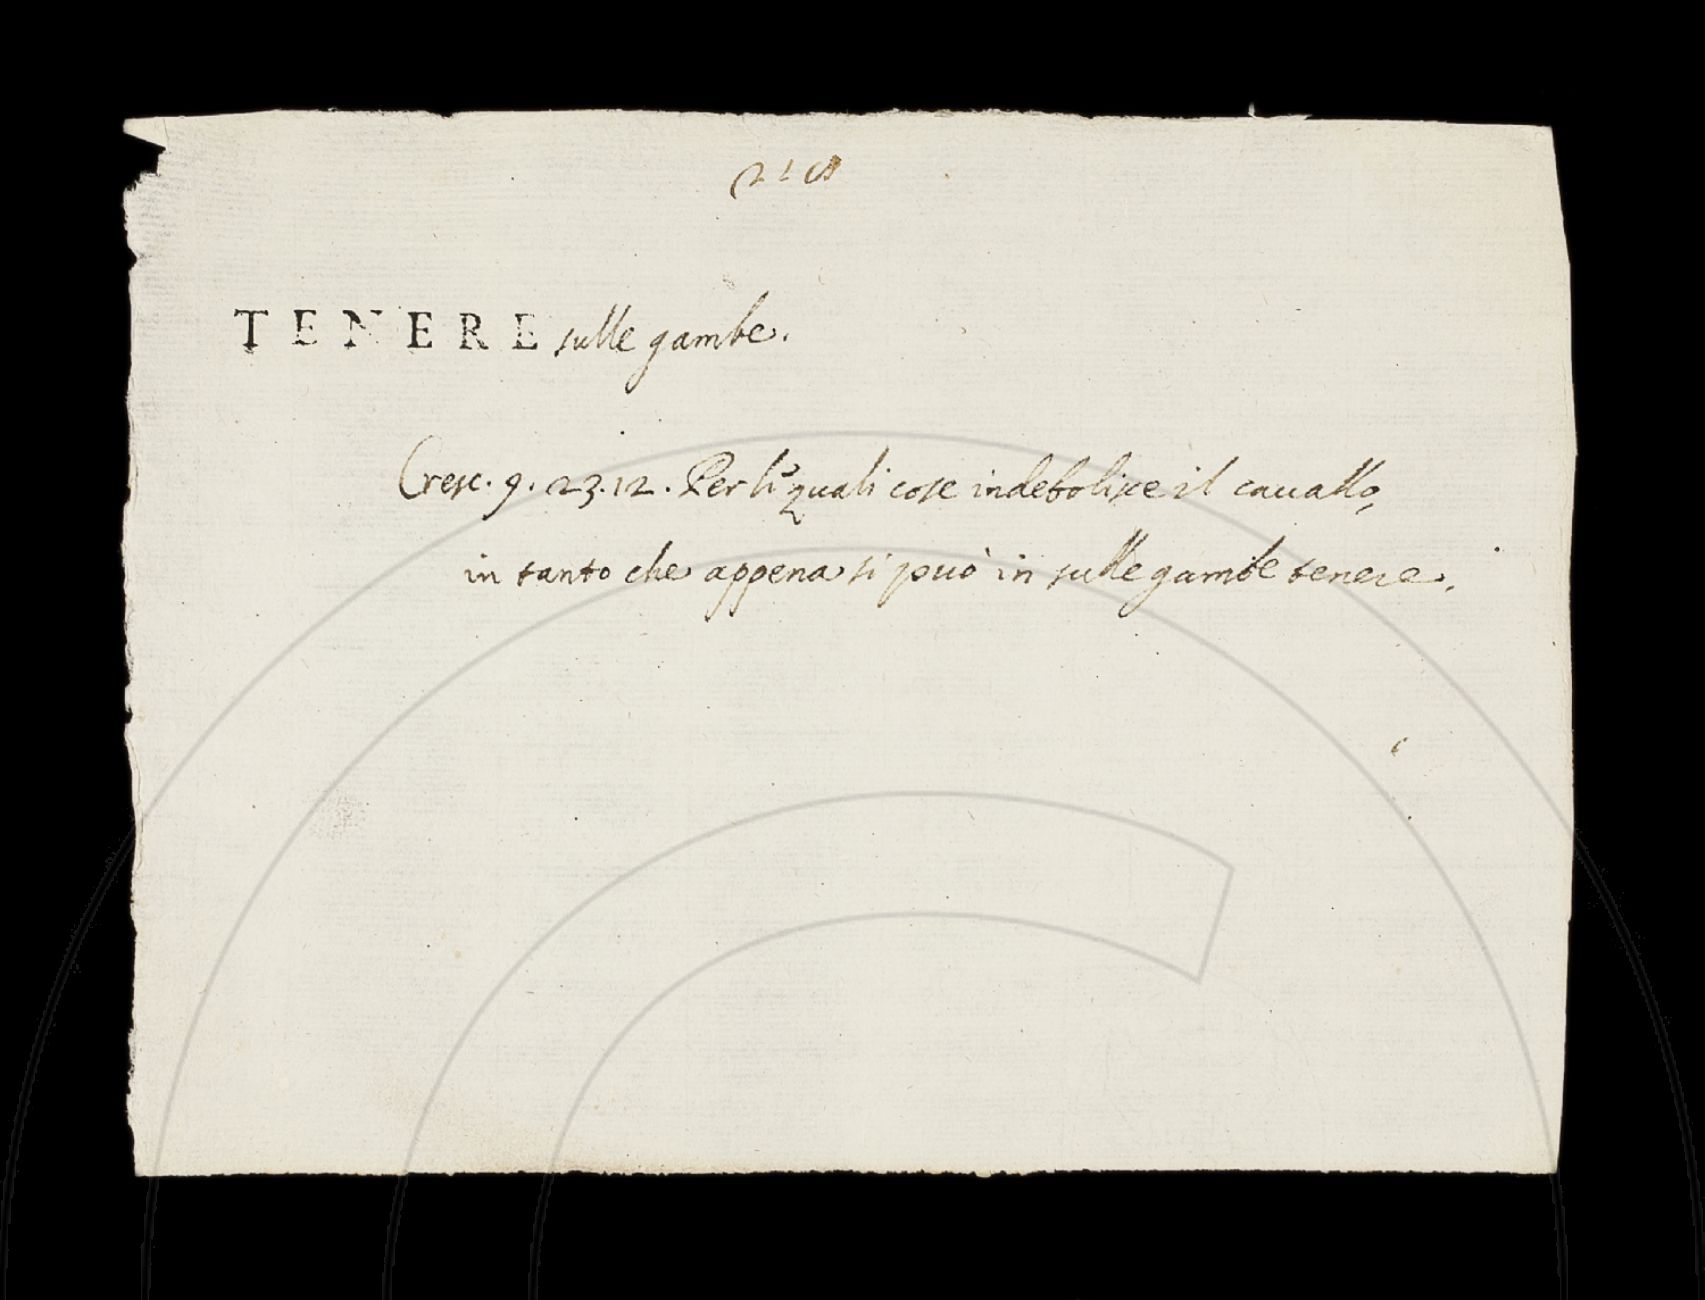 TENERE sulle gambe.
Cresc. 9. 23. 12. Per li quali cose indebolisce il cauallo,
in tanto che appena si può in sulle gambe tenere.